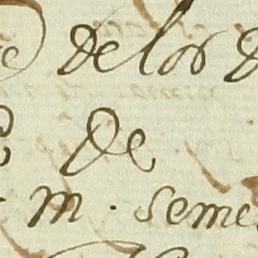 de los
de
m. seme